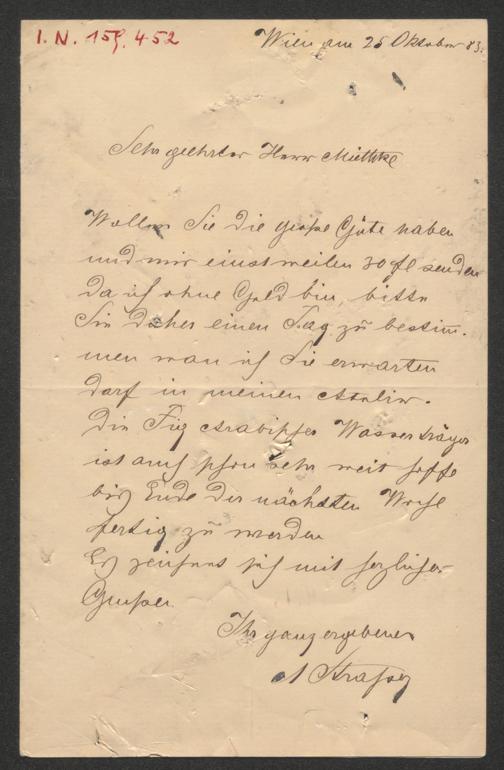 I. N. 159.452
Wien am 25 Oktober 83.
Sehr geehrter Herr Miethke
Wollen Sie die große Güte haben
und mir einstweilen 30 fl senden
da ich ohne Geld bin, bitte
Sie daher einen Tag zu bestim-
men wan ich Sie erwarten
darf in meinen Atelier.
Die Fig Arabischer Wasserträger
ist auch schon sehr weit hoffe
bis Ende der nächsten Woche
fertig zu werden
Es zeichnet sich mit herzlichen
Grußen
Ihr ganz ergebener
A Strasser